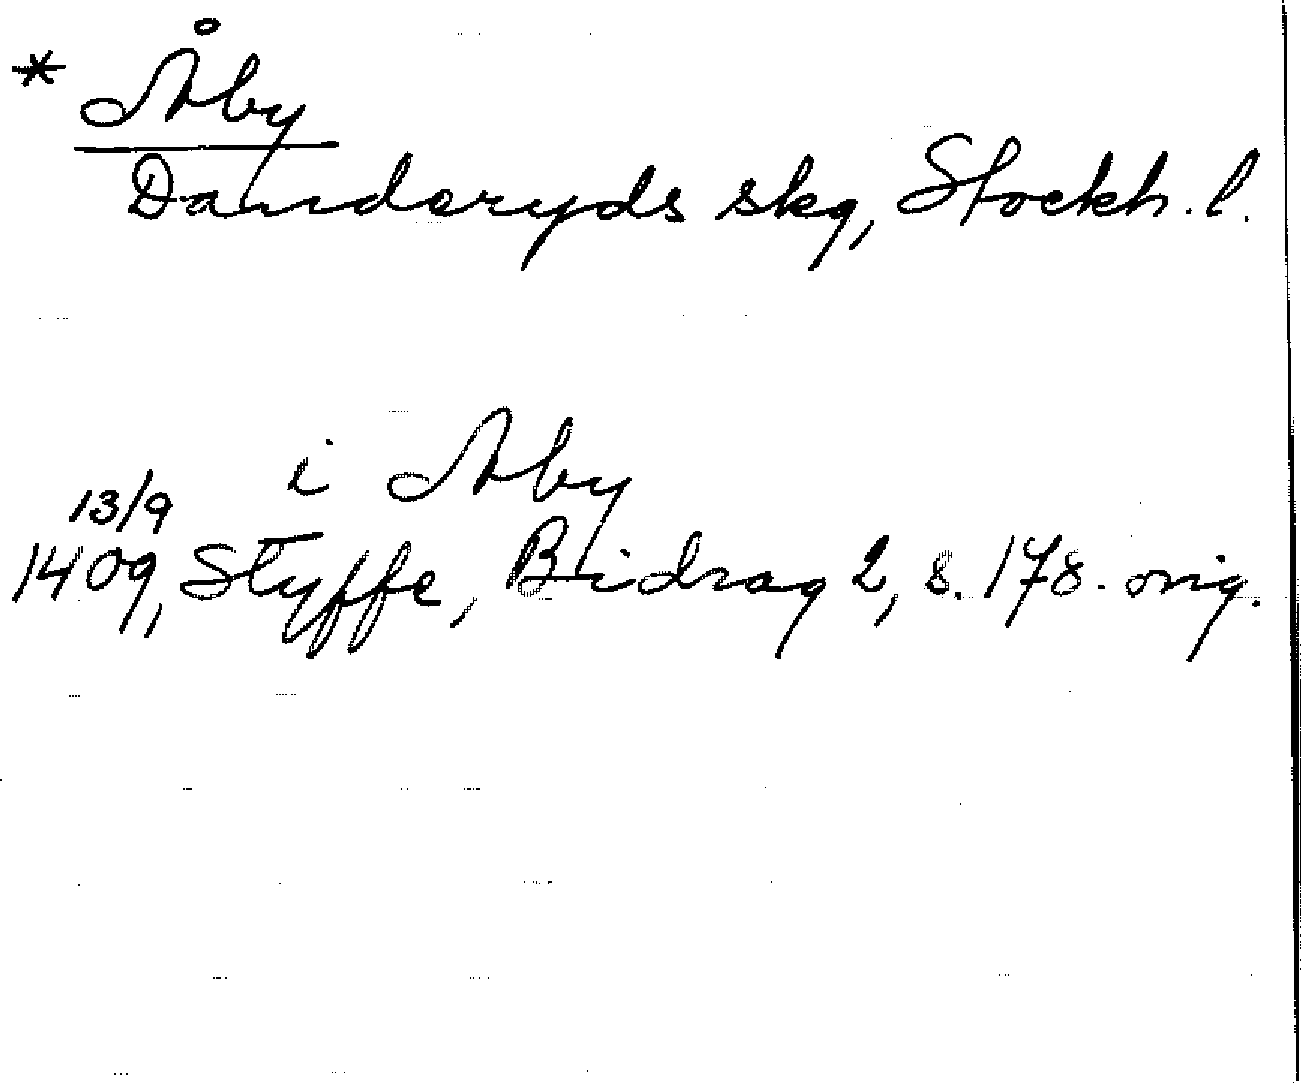 * Åby
Danderyds skg, Stockh. l.
i Aby
13/9
1409, Styffe, Bidrag 2, s. 178. orig.